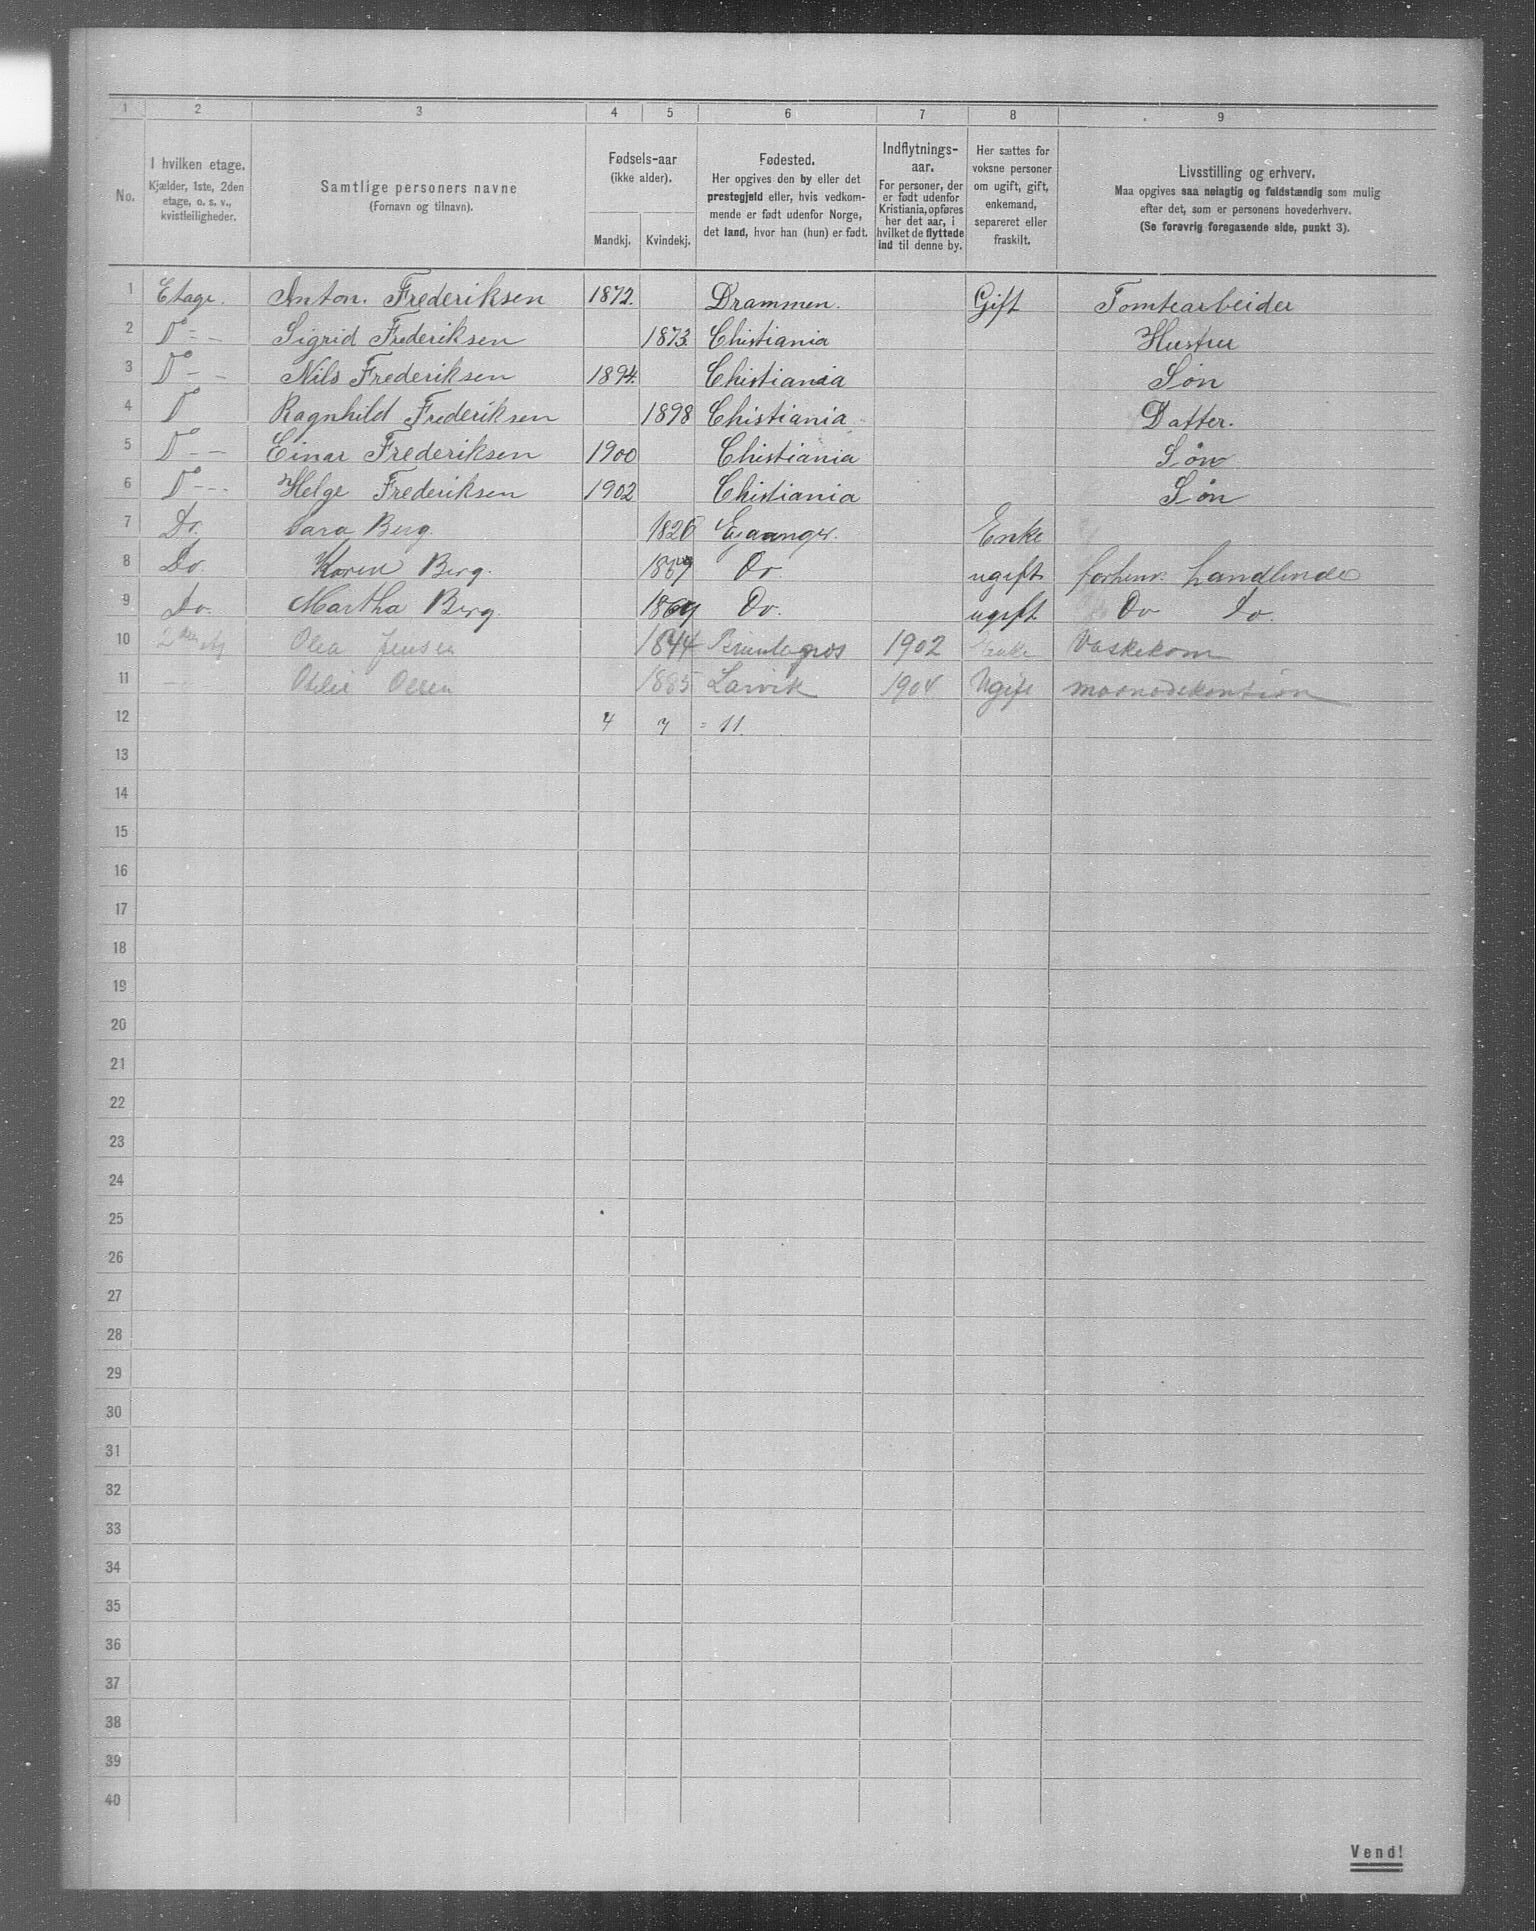 1 2 3 4 5 6 7 8 9
No.
I hvilken etage.
Kjælder, 1ste, 2den
etage, o. s. v.,
kvistleiligheder.
Samtlige personers navne
(Fornavn og tilnavn).
Fødsels-aar
(ikke alder).
Mandkj. Kvindekj.
Fødested.
Her opgives den by eller det
prestegjeld eller, hvis vedkom-
mende er født udenfor Norge,
det land, hvor han (hun) er født.
Indflytnings-
aar.
For personer, der
er født udenfor
Kristiania, opføres
her det aar, i
hvilket de flyttede
ind til denne by.
Her sættes for
voksne personer
om ugift, gift,
enkemand,
separeret eller
fraskilt.
Livsstilling og erhverv.
Maa opgives saa nøiagtig og fuldstændig som mulig
efter det, som er personens hovederhverv.
(Se forøvrig foregaaende side, punkt 3).
1 Etage. Anton. Frederiksen 1872. Drammen. Gift Tomtearbeider
2 Do - Sigrid Frederiksen 1873 Chistiania Hustru
3 Do - - Nils Frederiksen 1894. Chistiania Søn
4 Do Ragnhild Frederiksen 1898 Chistiania Datter.
5 Do - - Einar Frederiksen 1900 Chistiania Søn
6 Do - - Helge Frederiksen 1902 Chistiania Søn
7 Do. Sara Berg. 1826 Enke
8 Do. Karen Berg. Do. ugift forhenv. handlende
9 Do. Martha Berg. Do. ugift Do Do.
10 Olea Jensen 1844 1902 Enke Vaskekone
11 Olsen 1885 Larvik 1904 Ugift
12 4 7 = 11.
13
14
15
16
17
18
19
20
21
22
23
24
25
26
27
28
29
30
31
32
33
34
35
36
37
38
39
40
Vend!